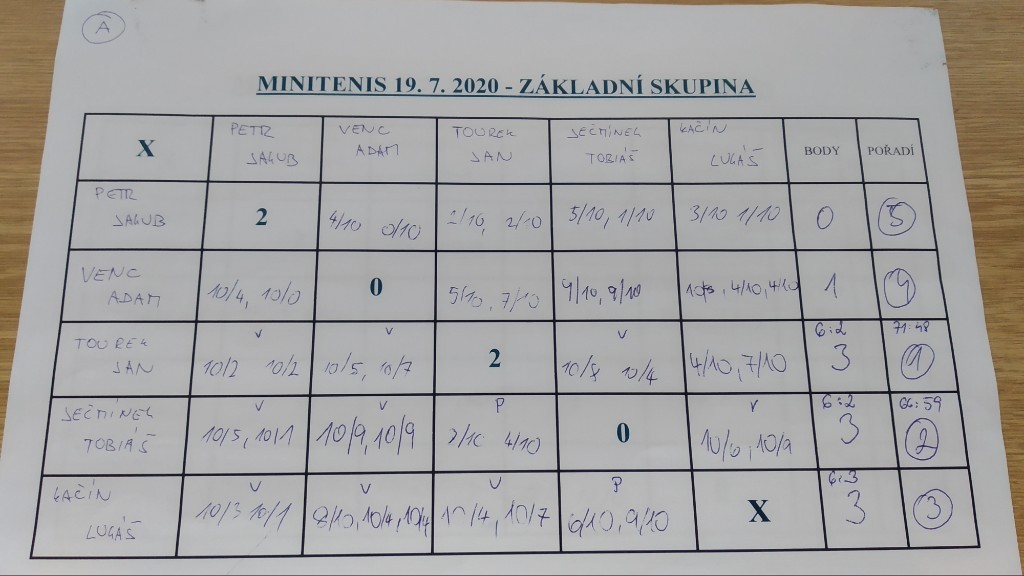 A
MINITENIS 19. 7. 2020 - ZÁKLADNÍ SKUPINA
X PETR JAKUB VENC ADAM TOUREK JAN JEČMÍNEK TOBIÁŠ KAČÍN LUKÁŠ BODY POŘADÍ
PETR JAKUB 2 4/10 0/10 2/10, 2/10 5/10, 1/10 3/10 1/10 0 5
VENC ADAM 10/4, 10/0 0 5/10, 7/10 9/10, 9/10 4/10, 4/10 1 4
TOUREK JAN V 10/2 10/2 V 10/5, 10/7 2 V 10/8 10/4 4/10, 7/10 6:2 3 71:48 1
JEČMÍNEK TOBIÁŠ V 10/5, 10/1 V 10/9, 10/9 P 4/10 0 V 10/6, 10/9 6:2 3 66:59 2
KAČÍN LUKÁŠ V 10/3 10/1 V 8/10, 10/4, 10/4 V 10/4, 10/7 P 6/10, 9/10 X 6:3 3 3